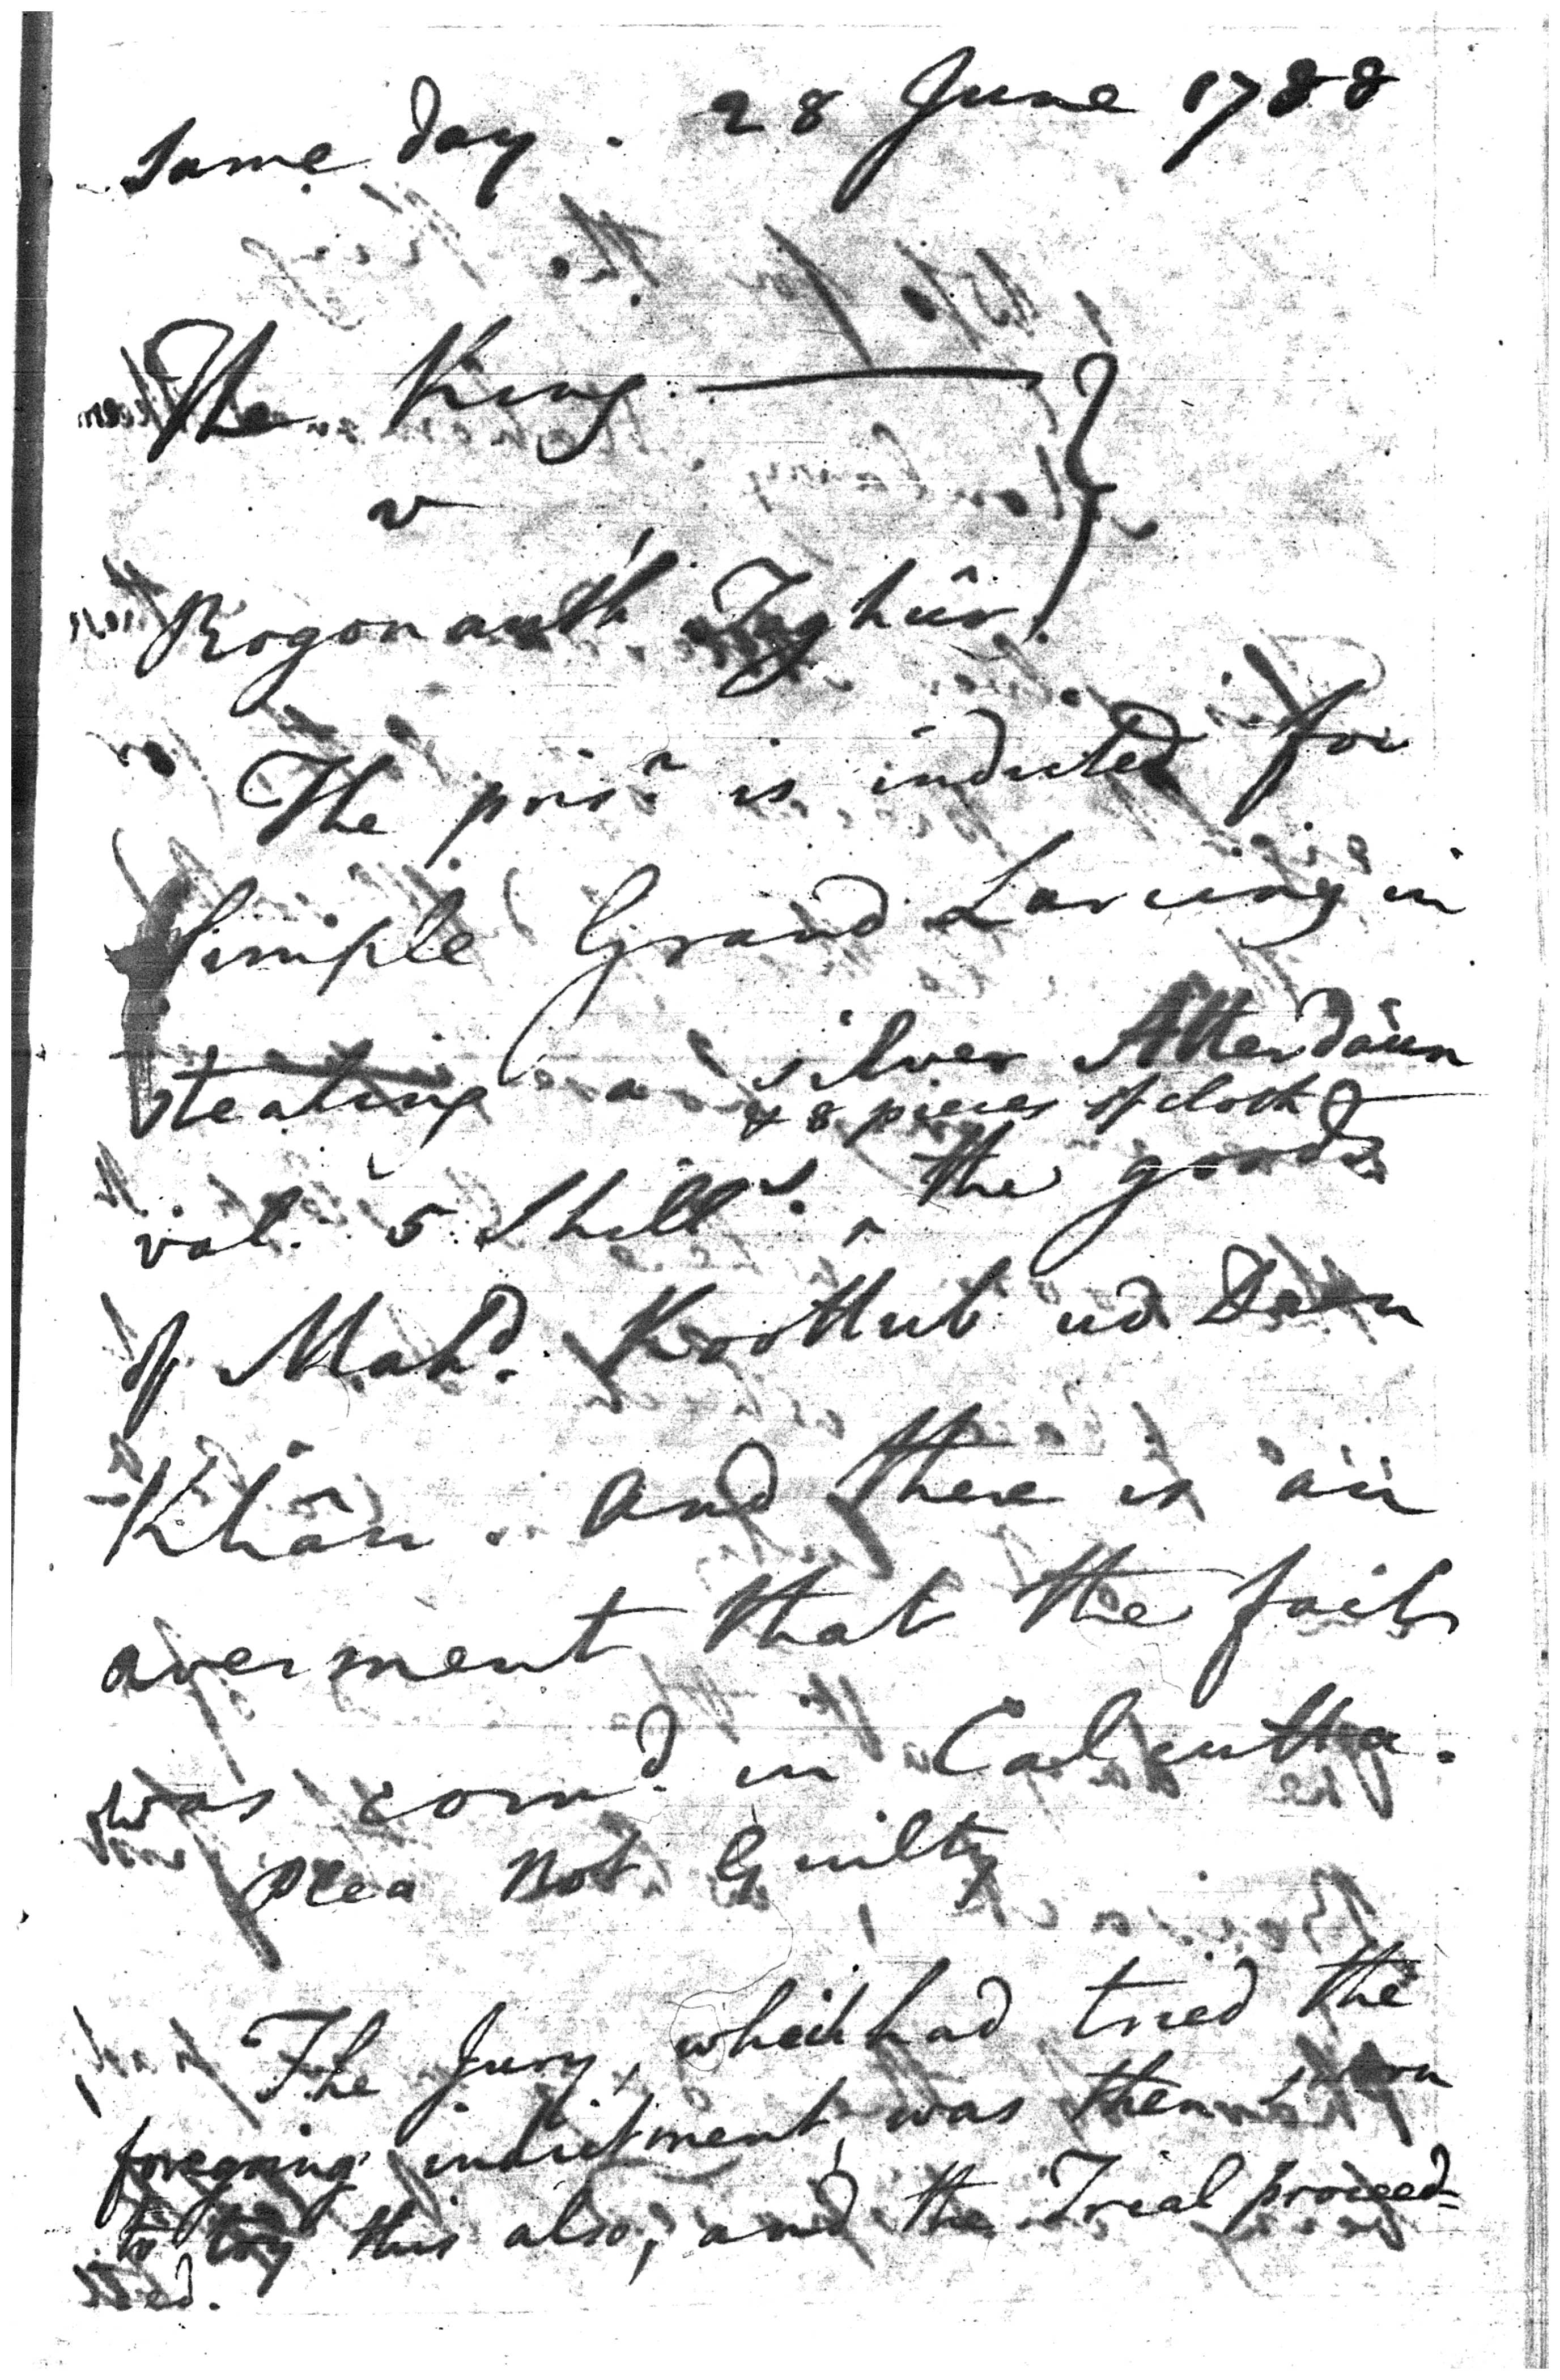 Same day. 28 June 1788
The King
v
Rogonauth Tayhûr
The pris.r is indicted for
Simple Grand Larceny in
stealing a silver Atterdaun
& 8 pieces of cloth
val. 5 Shill.s ^ the goods
of Mah.d Koottub ud Deen
Khân. And there is an
averment that the fact
was com.d in Calcutta.
Plea Not Guilty
The Jury, which had tried the
foregoing indictment, was then sworn
to try this also, and the Trial proceed=
ed.